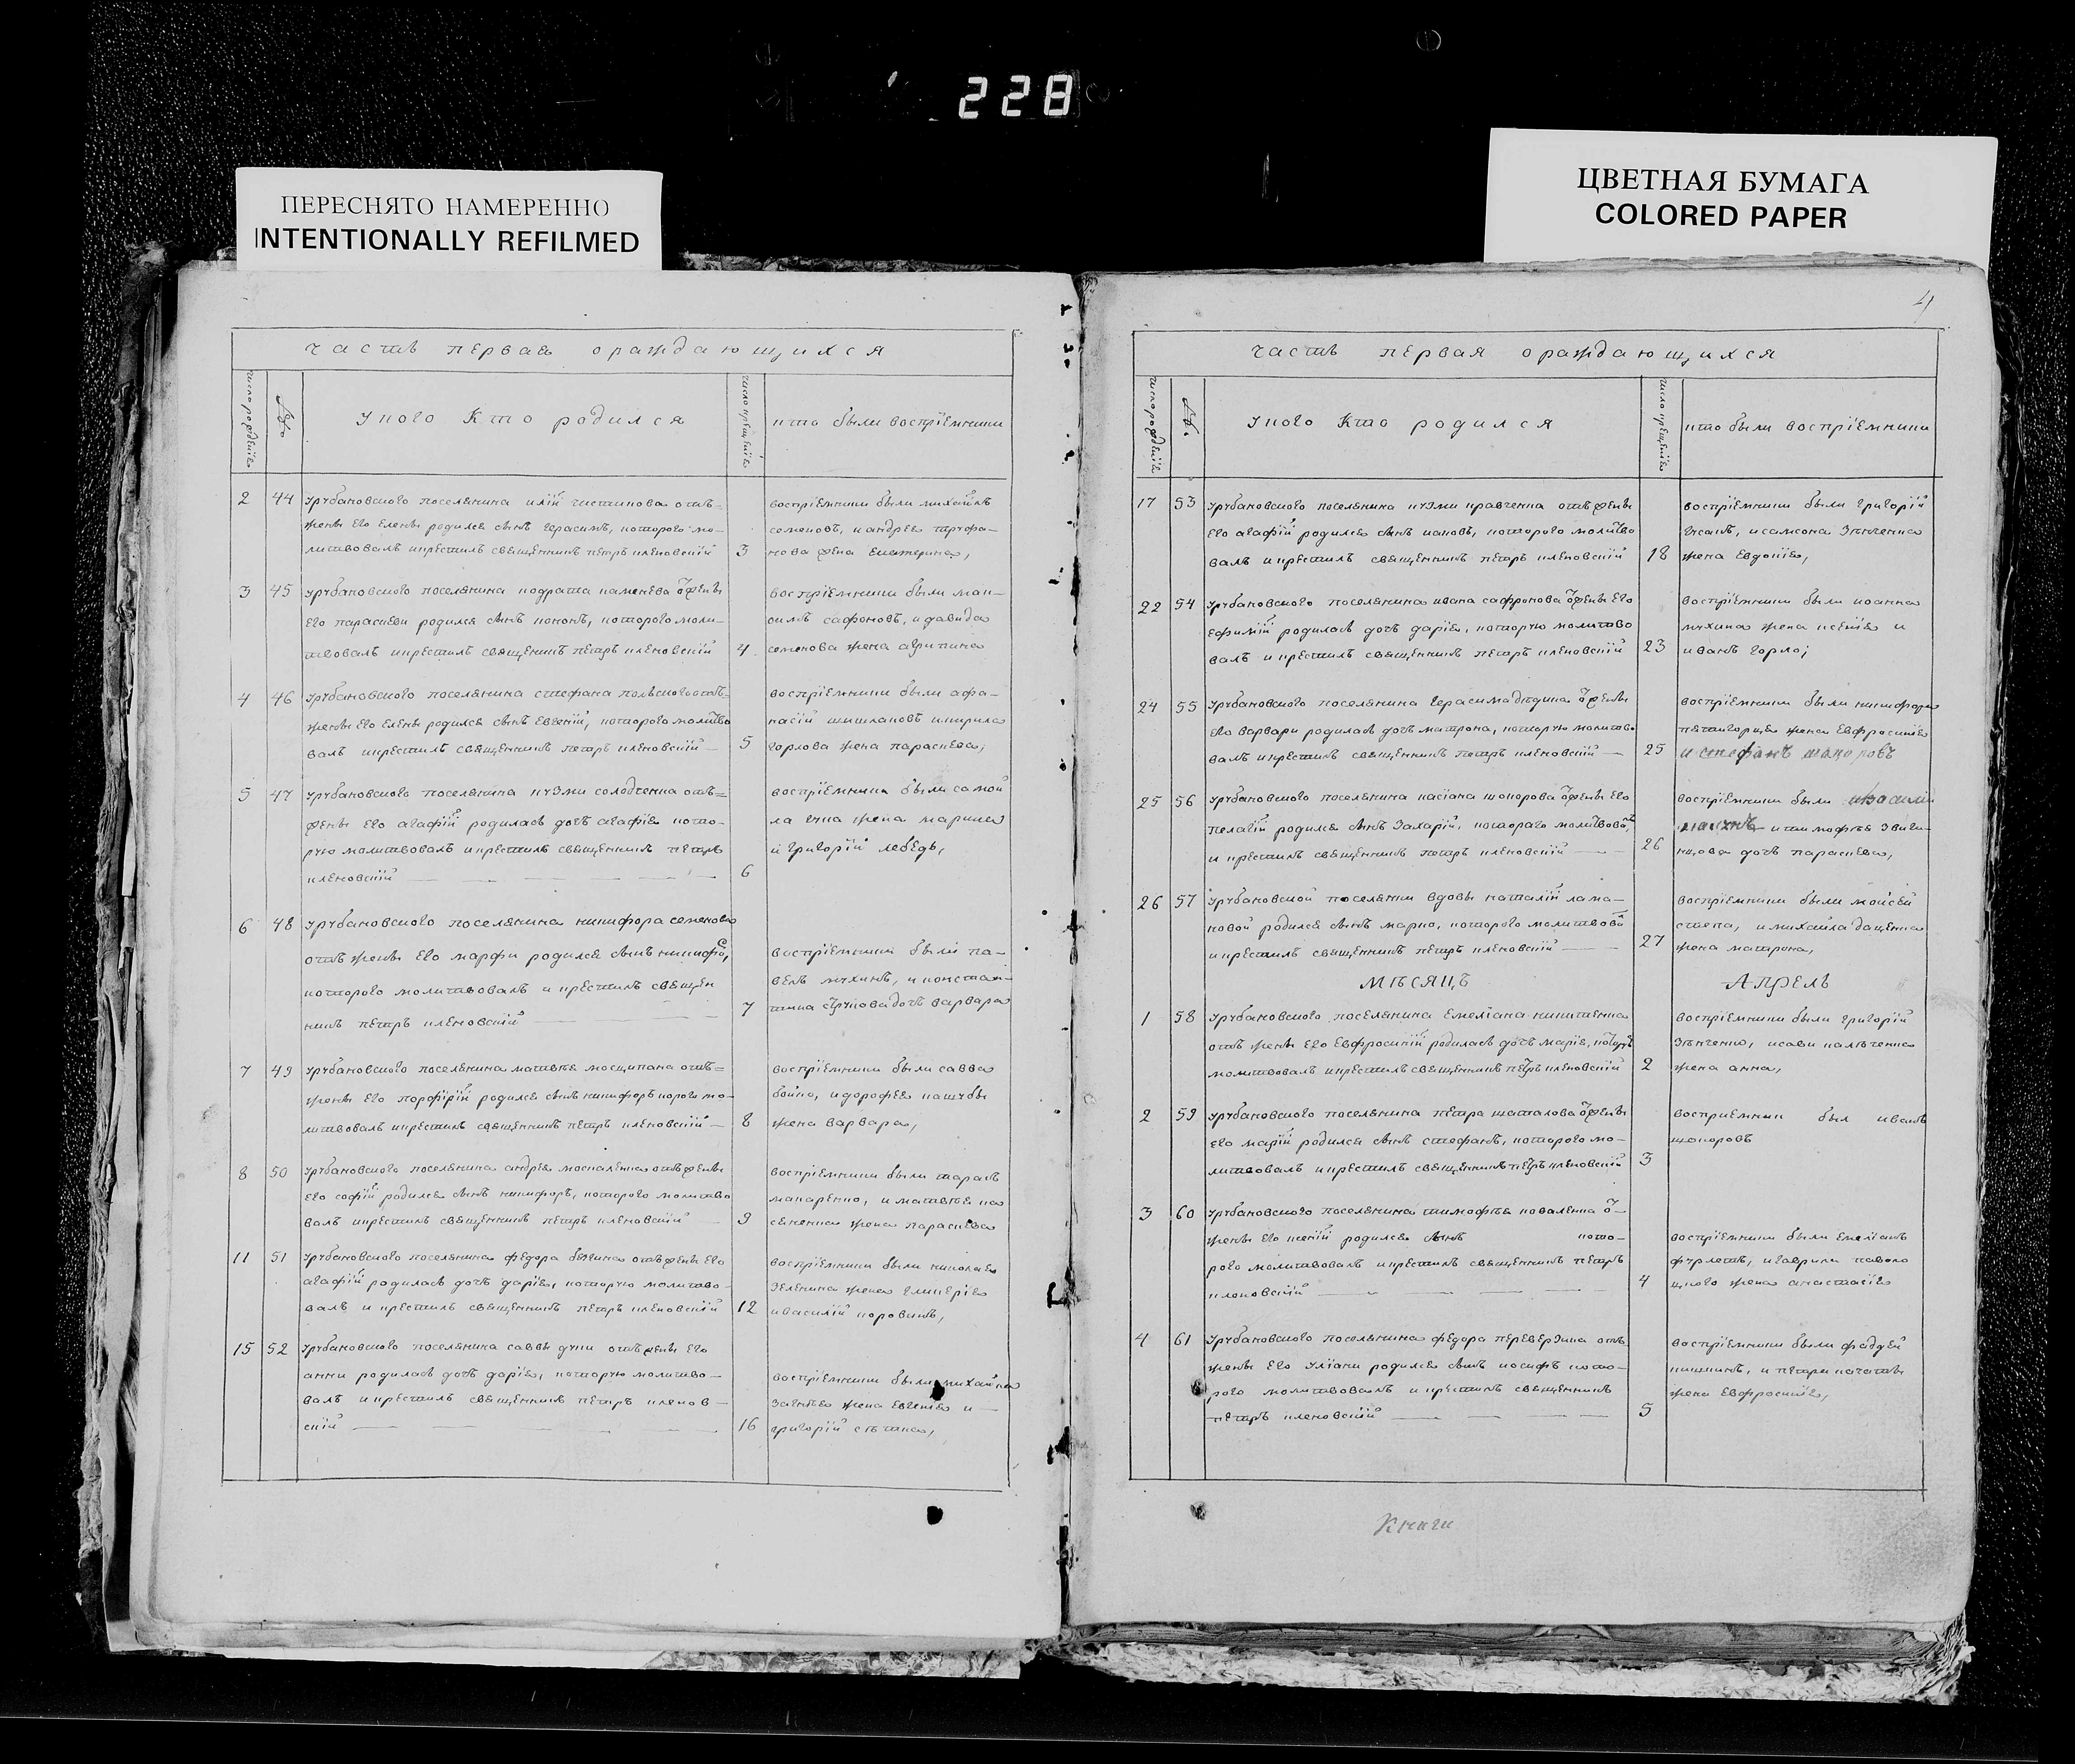 228
ПЕРЕСНЯТО НАМЕРЕННО
INTENTIONALLY REFILMED
ЦВЕТНАЯ БУМАГА
COLORED PAPER
часть первая ораждающихся
число рожденїе
№
у кого кто родился
число крещенїе
кто были воспрїемники
2 44 урубановского поселянина илїи
жены его елены родился сынъ герасимъ, которого мо-
литвовалъ и крестилъ священникъ петръ кленовскїй 3
воспрїемники были михайла
семеновъ, и андрея труфа-
нова жена екатерина,
3 45 урубановского поселянина кодрата каменева ѿ жены
его параскеви родился сынъ кононъ, которого моли-
твовалъ и крестилъ священникъ петръ кленовскїй 4
воспрїемники были мак-
симъ сафоновъ, и давида
семенова жена агрипина
4 46 урубановского поселянина стефана польского отъ=
жены его елены родился сынъ евгенїй, которого молитво
валъ и крестилъ священникъ петръ кленовскїй — 5
воспрїемники были афа-
насїй шишлаковъ и кирила
горлова жена параскева,
5 47 урубановского поселянина кузми солодченка отъ=
жены его агафїи родилась дочь агафїя кото-
рую молитвовалъ и крестилъ священникъ петръ
кленовскїй 6
воспрїемники были самой
ла жена марина
и григорїй лебедь,
6 48 урубановского поселянина никифора семенова
отъ жены его марфи родился сынъ
которого молитвовалъ и крестилъ священ
никъ петръ кленовскїй 7
воспрїемники были па-
велъ мухинъ, и констан-
тина дочь варвара
7 49 урубановского поселянина матвѣя москипана отъ=
жены его порфирїи родился сынъ никифоръ корого мо-
литвовалъ и крестилъ священникъ петръ кленовскїй — 8
воспрїемники были савва
бойко, и дорофея кашубы
жена варвара,
8 50 урубановского поселянина андрея москаленка отъ жены
его софїи родился сынъ никифоръ, которого молитво
валъ и крестилъ священникъ петръ кленовскїй 9
воспрїемники были тарасъ
макаренко, и матвѣя ко
сененка жена параскева
11 51 урубановского поселянина федора отъ жены его
агафїи родилась дочь дарїя, которую молитво-
валъ и крестилъ священникъ петръ кленовскїй 12
воспрїемники были николая
зеленина жена гликерїя
и василїй коровинъ,
15 52 урубановского поселянина саввы дуки отъ жены его
анни родилась дочь дарїя, которую молитво-
валъ и крестилъ священникъ петръ кленов-
скїй 16
воспрїемники были михайла
жена евгенїя и —
григорїй
4
часть первая ораждающихся
число рожденїе
№
у кого кто родился
число крещенїе
кто были воспрїемники
17 53 урубановского поселянина кузми кравченка отъ жены
его агафїи родился сынъ иаковъ, которого молитво
валъ и крестилъ священникъ петръ кленовскїй 18
воспрїемники были григорїй
и самсона зѣнченка
жена евдокїя,
22 54 урубановского поселянина ивана сафронова ѿ жены его
ефимїи родилась дочь дарїя, которую молитво
валъ и крестилъ священникъ петръ кленовскїй 23
воспрїемники были иоанна
мухина жена ксенїя и
иванъ горло;
24 55 урубановского поселянина герасима дѣдина ѿ жены
его варвари родилась дочь матрона, которую молитво
валъ и крестилъ священникъ петръ кленовскїй — 25
воспрїемники были никифора
пятигорца жена евфросинїя
и стефанъ шокоровъ
25 56 урубановского поселянина касїана шокорова ѿ жены его
пелагїи родился сынъ захарїй, которого молитвовалъ
и крестилъ священникъ петръ кленовскїй 26
воспрїемники были
и тимофѣя звиги-
нцова дочь параскева,
26 57 урубановской поселянки вдовы наталїи лама-
новой родился сынъ марко, которого молитвовалъ
и крестилъ священникъ петръ кленовскїй 27
воспрїемники были мойсей
степа, и михайла дащенка
жена матрона,
мѣсяцъ Апрель
1 58 урубановского поселянина емелїана никитенка
отъ жены его евфросинїи родилась дочь марїя, которую
молитвовалъ и крестилъ священникъ петръ кленовскїй 2
воспрїемники были григорїй
зѣнченко, и сави калѣченка
жена анна,
2 59 урубановского поселянина петра шаталова ѿ жены
его марїи родился сынъ стефанъ, которого мо-
литвовалъ и крестилъ священникъ петръ кленовскїй 3
восприемник был иванъ
шокоровъ
3 60 урубановского поселянина тимофѣя коваленка ѿ-
жены его ксенїи родился сынъ кото-
рого молитвовалъ и крестилъ священникъ петръ
кленовскїй 4
воспрїемники были емелїанъ
фурлетъ, и гаврила
жена анастасїя
4 61 урубановского поселянина федора переверзина отъ
жены его улїани родился сынъ иосифъ кото-
рого молитвовалъ и крестилъ священникъ
петръ кленовскїй 5
воспрїемники были фаддей
кишкинъ, и петра
жена евфросинїя,
Книги